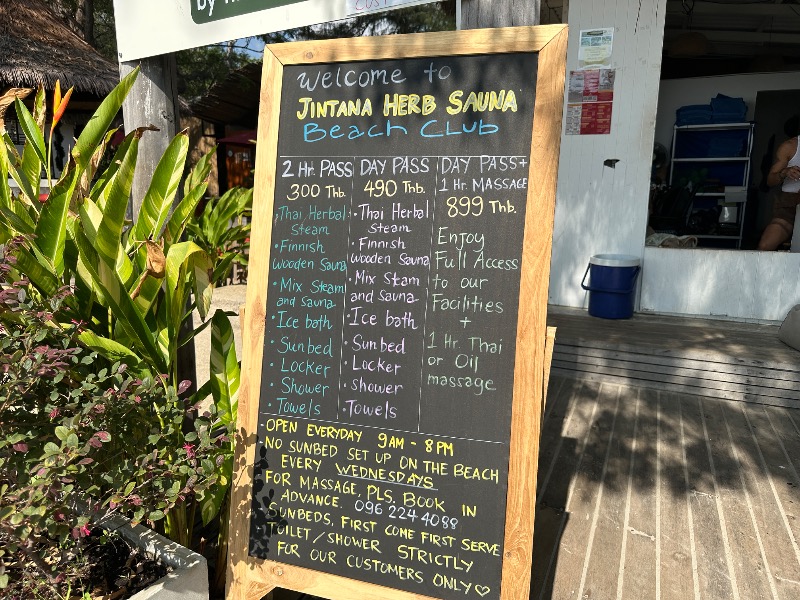 by
Welcome to
JINTANA HERB SAUNA
Beach Club
2 Hr. PASS
300 Thb.
• Thai Herbal
Steam
• Finnish
Wooden Sauna
• Mix Steam
and Sauna
• Ice bath
• Sunbed
• Locker
• Shower
• Towels
DAY PASS
490 Thb.
• Thai Herbal
Steam
• Finnish
Wooden Sauna
• Mix Steam
and Sauna
• Ice bath
• Sunbed
• Locker
• shower
• Towels
DAY PASS+
1 Hr. MASSAGE
899 Thb.
Enjoy
Full Access
to our
Facilities
+
1 Hr. Thai
or Oil
massage
OPEN EVERYDAY 9AM - 8PM
NO SUNBED SET UP ON THE BEACH
EVERY WEDNESDAYS
FOR MASSAGE, PLS. BOOK IN
ADVANCE. 096 224 4088
SUNBEDS, FIRST COME FIRST SERVE
TOILET/SHOWER STRICTLY
FOR OUR CUSTOMERS ONLY♡